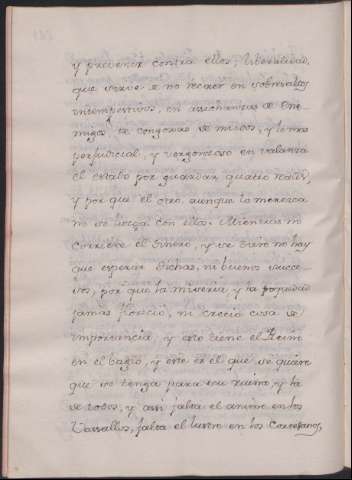 y prevenir contra ellos; liberalidad,
que sirve a no recaer en sobresaltos
intempestivos, en asechanzas de Ene-
migos, de congoxas de muchos, y lo mas
perjudicial, y vergonzoso en
el estado por guardar quatro reales,
y por que el otro, aunque lo merezca
no se huelga con ellos. Mientras no
corriere el Dinero, y se diere no hay
que esperar dichas, ni buenos succe-
sos, por que la miseria, y la
jamas floreció, ni creció cosa de
importancia, y esto tiene el Reino
en el bagio, y este es el que se quiere
que se tenga para su ruina, y la
de todos, y assi falta el animo en los
Vassallos, falta el lustre en los Cortesanos,